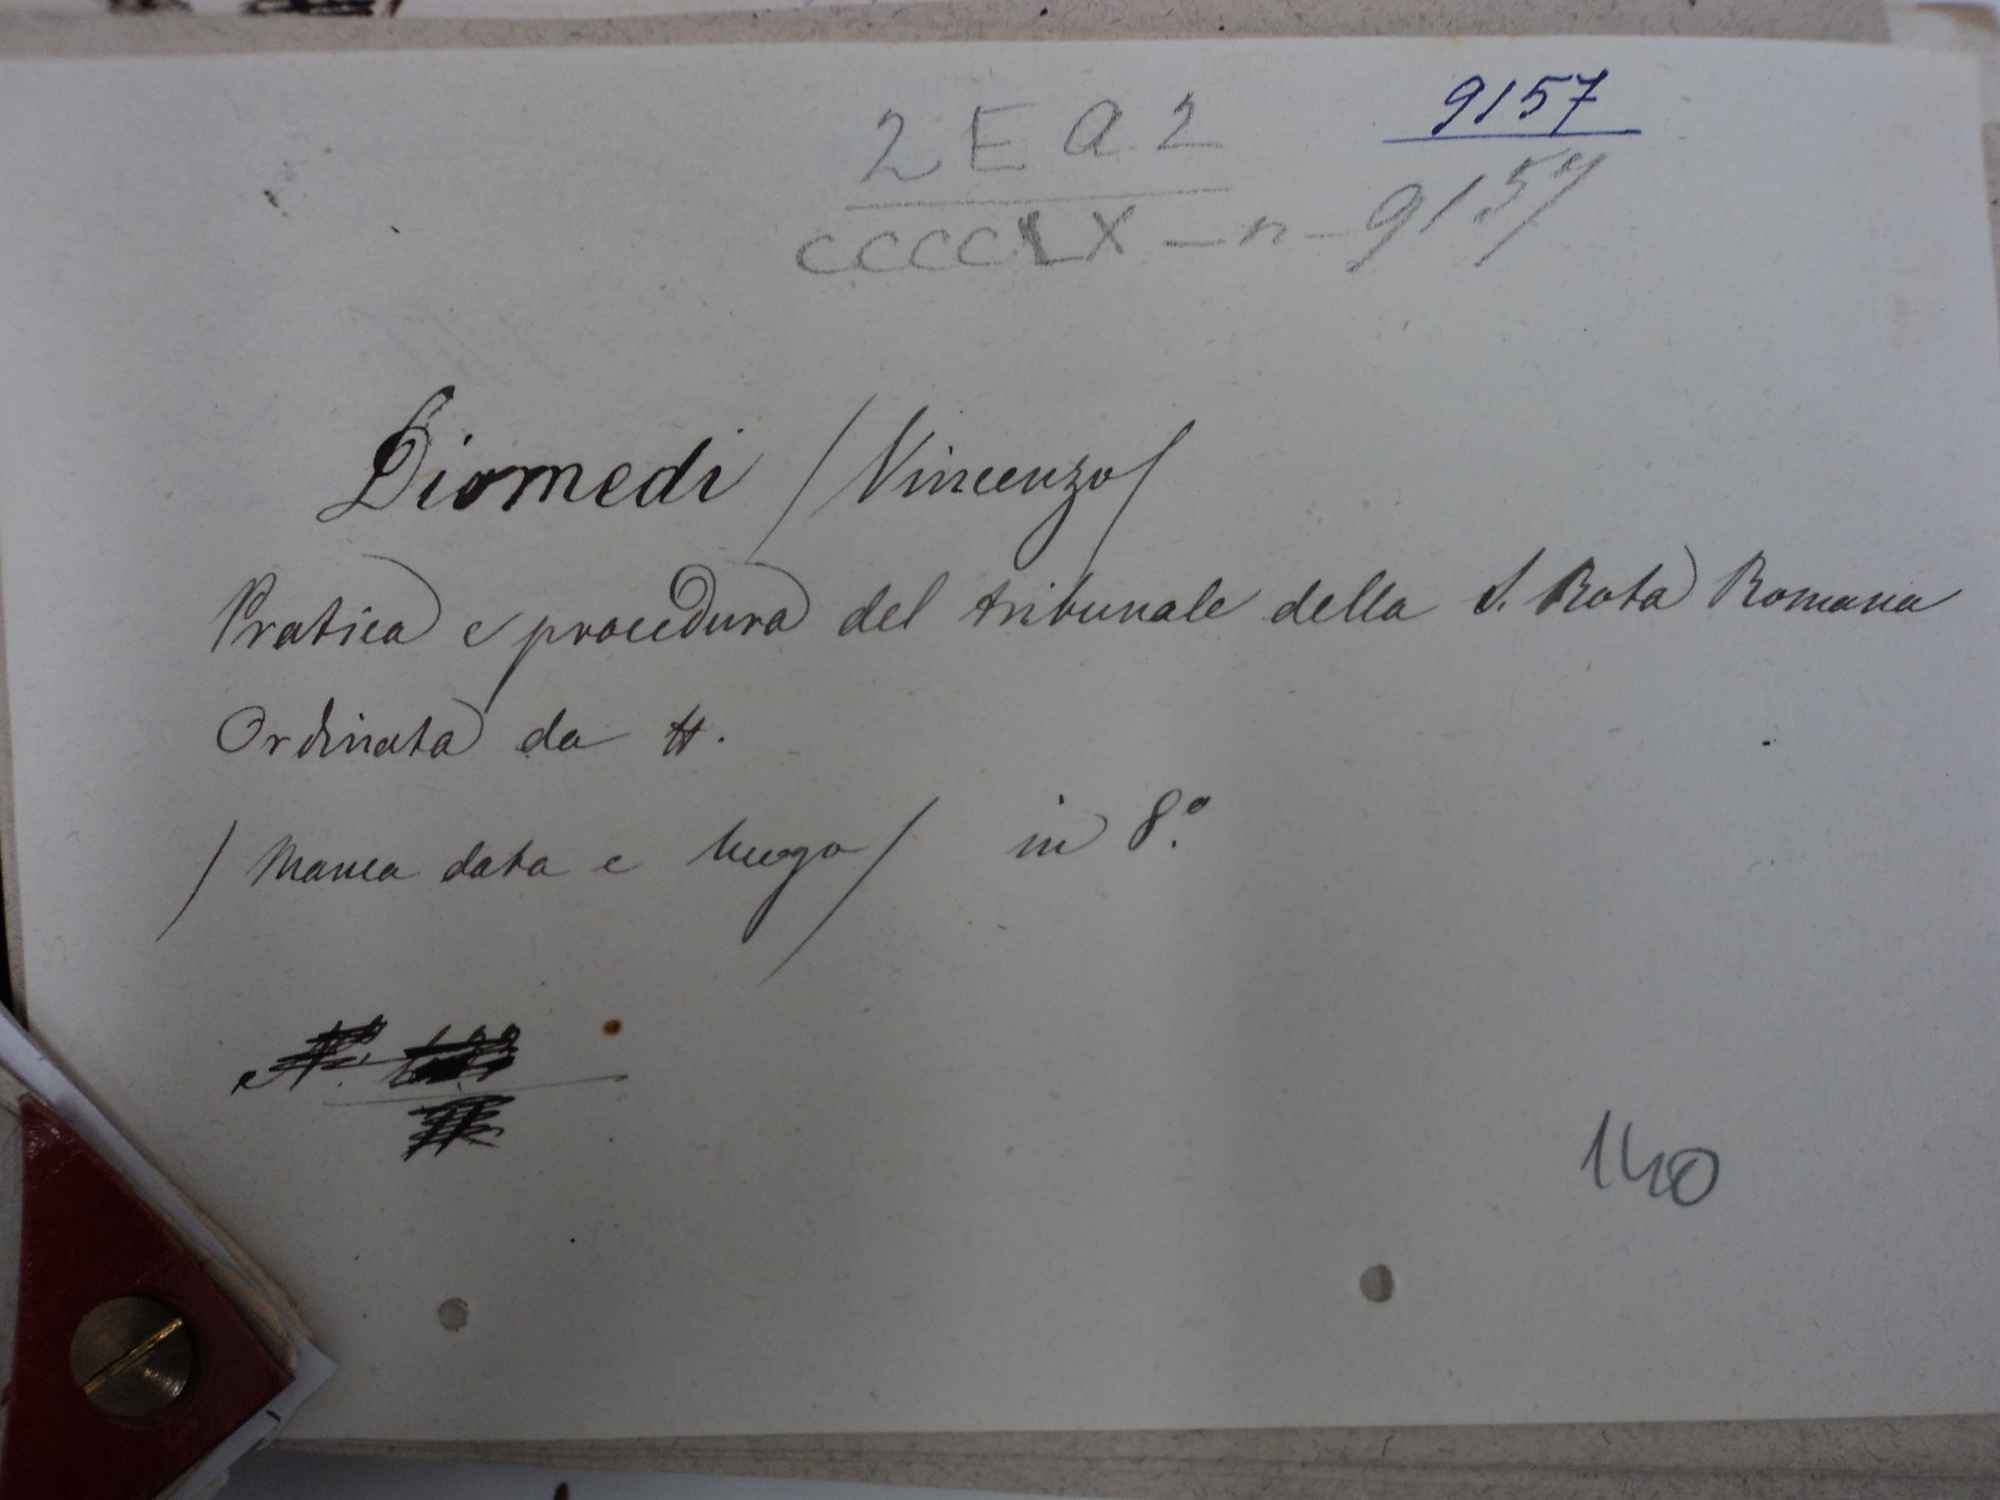 9157
2 E a. 2
CCCCLX - n - 9157
Diomedi / Vincenzo /
Pratica e procedura del tribunale della S. Rota Romana
Ordinata da
/ Manca data e luogo / in 8.º
140